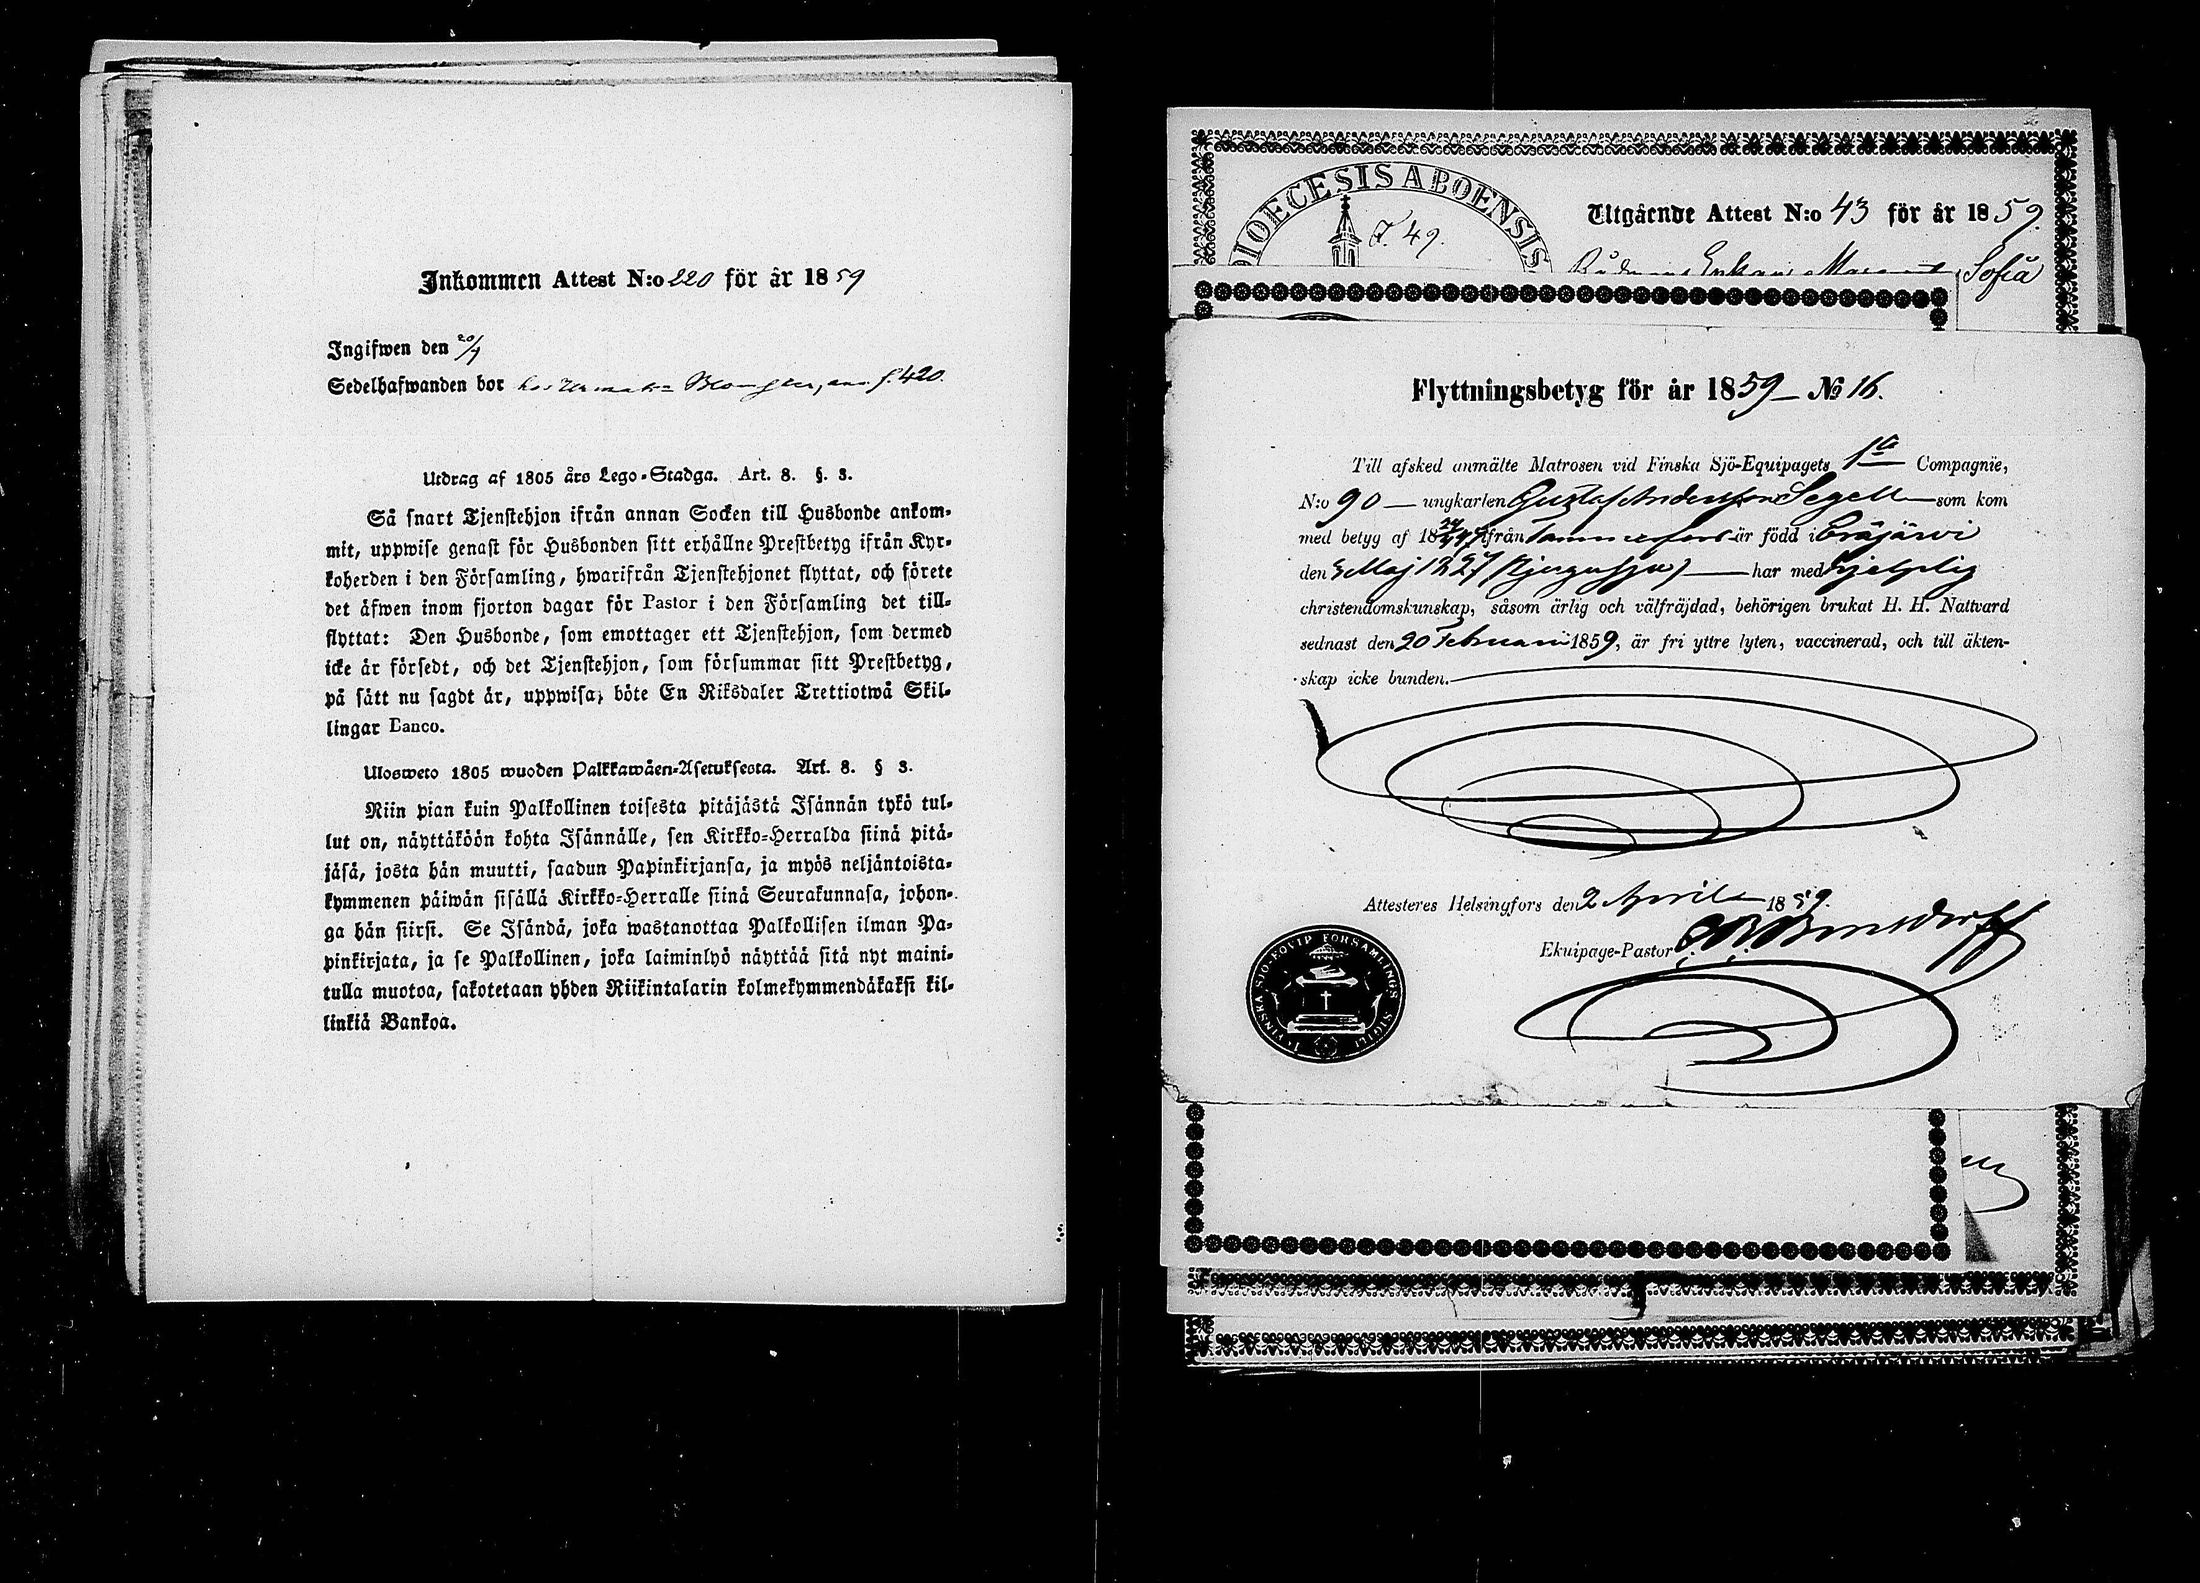 Inkommen Attest N:o 220 för år 1859
Ingifwen den 20/4
Sedelhafwanden bor hos f. 420.
Utdrag af 1805 års Lego-Stadga. Art. 8. §. 3.
Så snart Tjenstehjon ifrån annan Socken till Husbonde ankom-
mit, uppwise genast för Husbonden sitt erhållne Prestbetyg ifrån Kyr-
koherden i den Församling, hwarifrån Tjenstehjonet flyttat, och förete
det äfwen inom fjorton dagar för Pastor i den Församling det till-
flyttat: Den Husbonde, som emottager ett Tjenstehjon, som dermed
icke är försedt, och det Tjenstehjon, som försummar sitt Prestbetyg,
på sätt nu sagdt är, uppwisa, böte En Riksdaler Trettiotwå Skil-
lingar Banco.
Ulosweto 1805 wuoden Palkkawäen-Asetuksesta. Art. 8. § 3.
Niin pian kuin Palkollinen toisesta pitäjästä Isännän tykö tul-
lut on, näyttäköön kohta Isännälle, sen Kirkko-Herralda siinä pitä-
jäsä, josta hän muutti, saadun Papinkirjansa, ja myös neljäntoista-
kymmenen päiwän sisällä Kirkko-Herralle siinä Seurakunnasa, johon-
ga hän siirsi. Se Isändä, joka wastanottaa Palkollisen ilman Pa-
pinkirjata, ja se Palkollinen, joka laiminlyö näyttää sitä nyt maini-
tulla muotoa, sakotetaan yhden Riikintalarin kolmekymmendäkaksi kil-
linkiä Bankoa.
DIOECESIS ABOENSIS
F. 49.
Utgående Attest N:o 43 för år 1859.
Enkan Sofia
Flyttningsbetyg för år 1859 № 16.
Till afsked anmälte Matrosen vid Finska Sjö-Equipagets 1a Compagnie,
N:o 90 ungkarlen Gustaf Andersson Segell som kom
med betyg af 18 ifrån Tammerfors är född i Eräjärvi
den 3 Maj 1827 (tjugusju) har med hjelplig
christendomskunskap, såsom ärlig och välfräjdad, behörigen brukat H. H. Nattvard
sednast den 20 Februarii 1859, är fri yttre lyten, vaccinerad, och till äkten-
skap icke bunden.
Attesteres Helsingfors den 2 April 1859.
Ekuipage-Pastor
FINSKA SJÖ-EQVIP FÖRSAMLINGS SIGILL